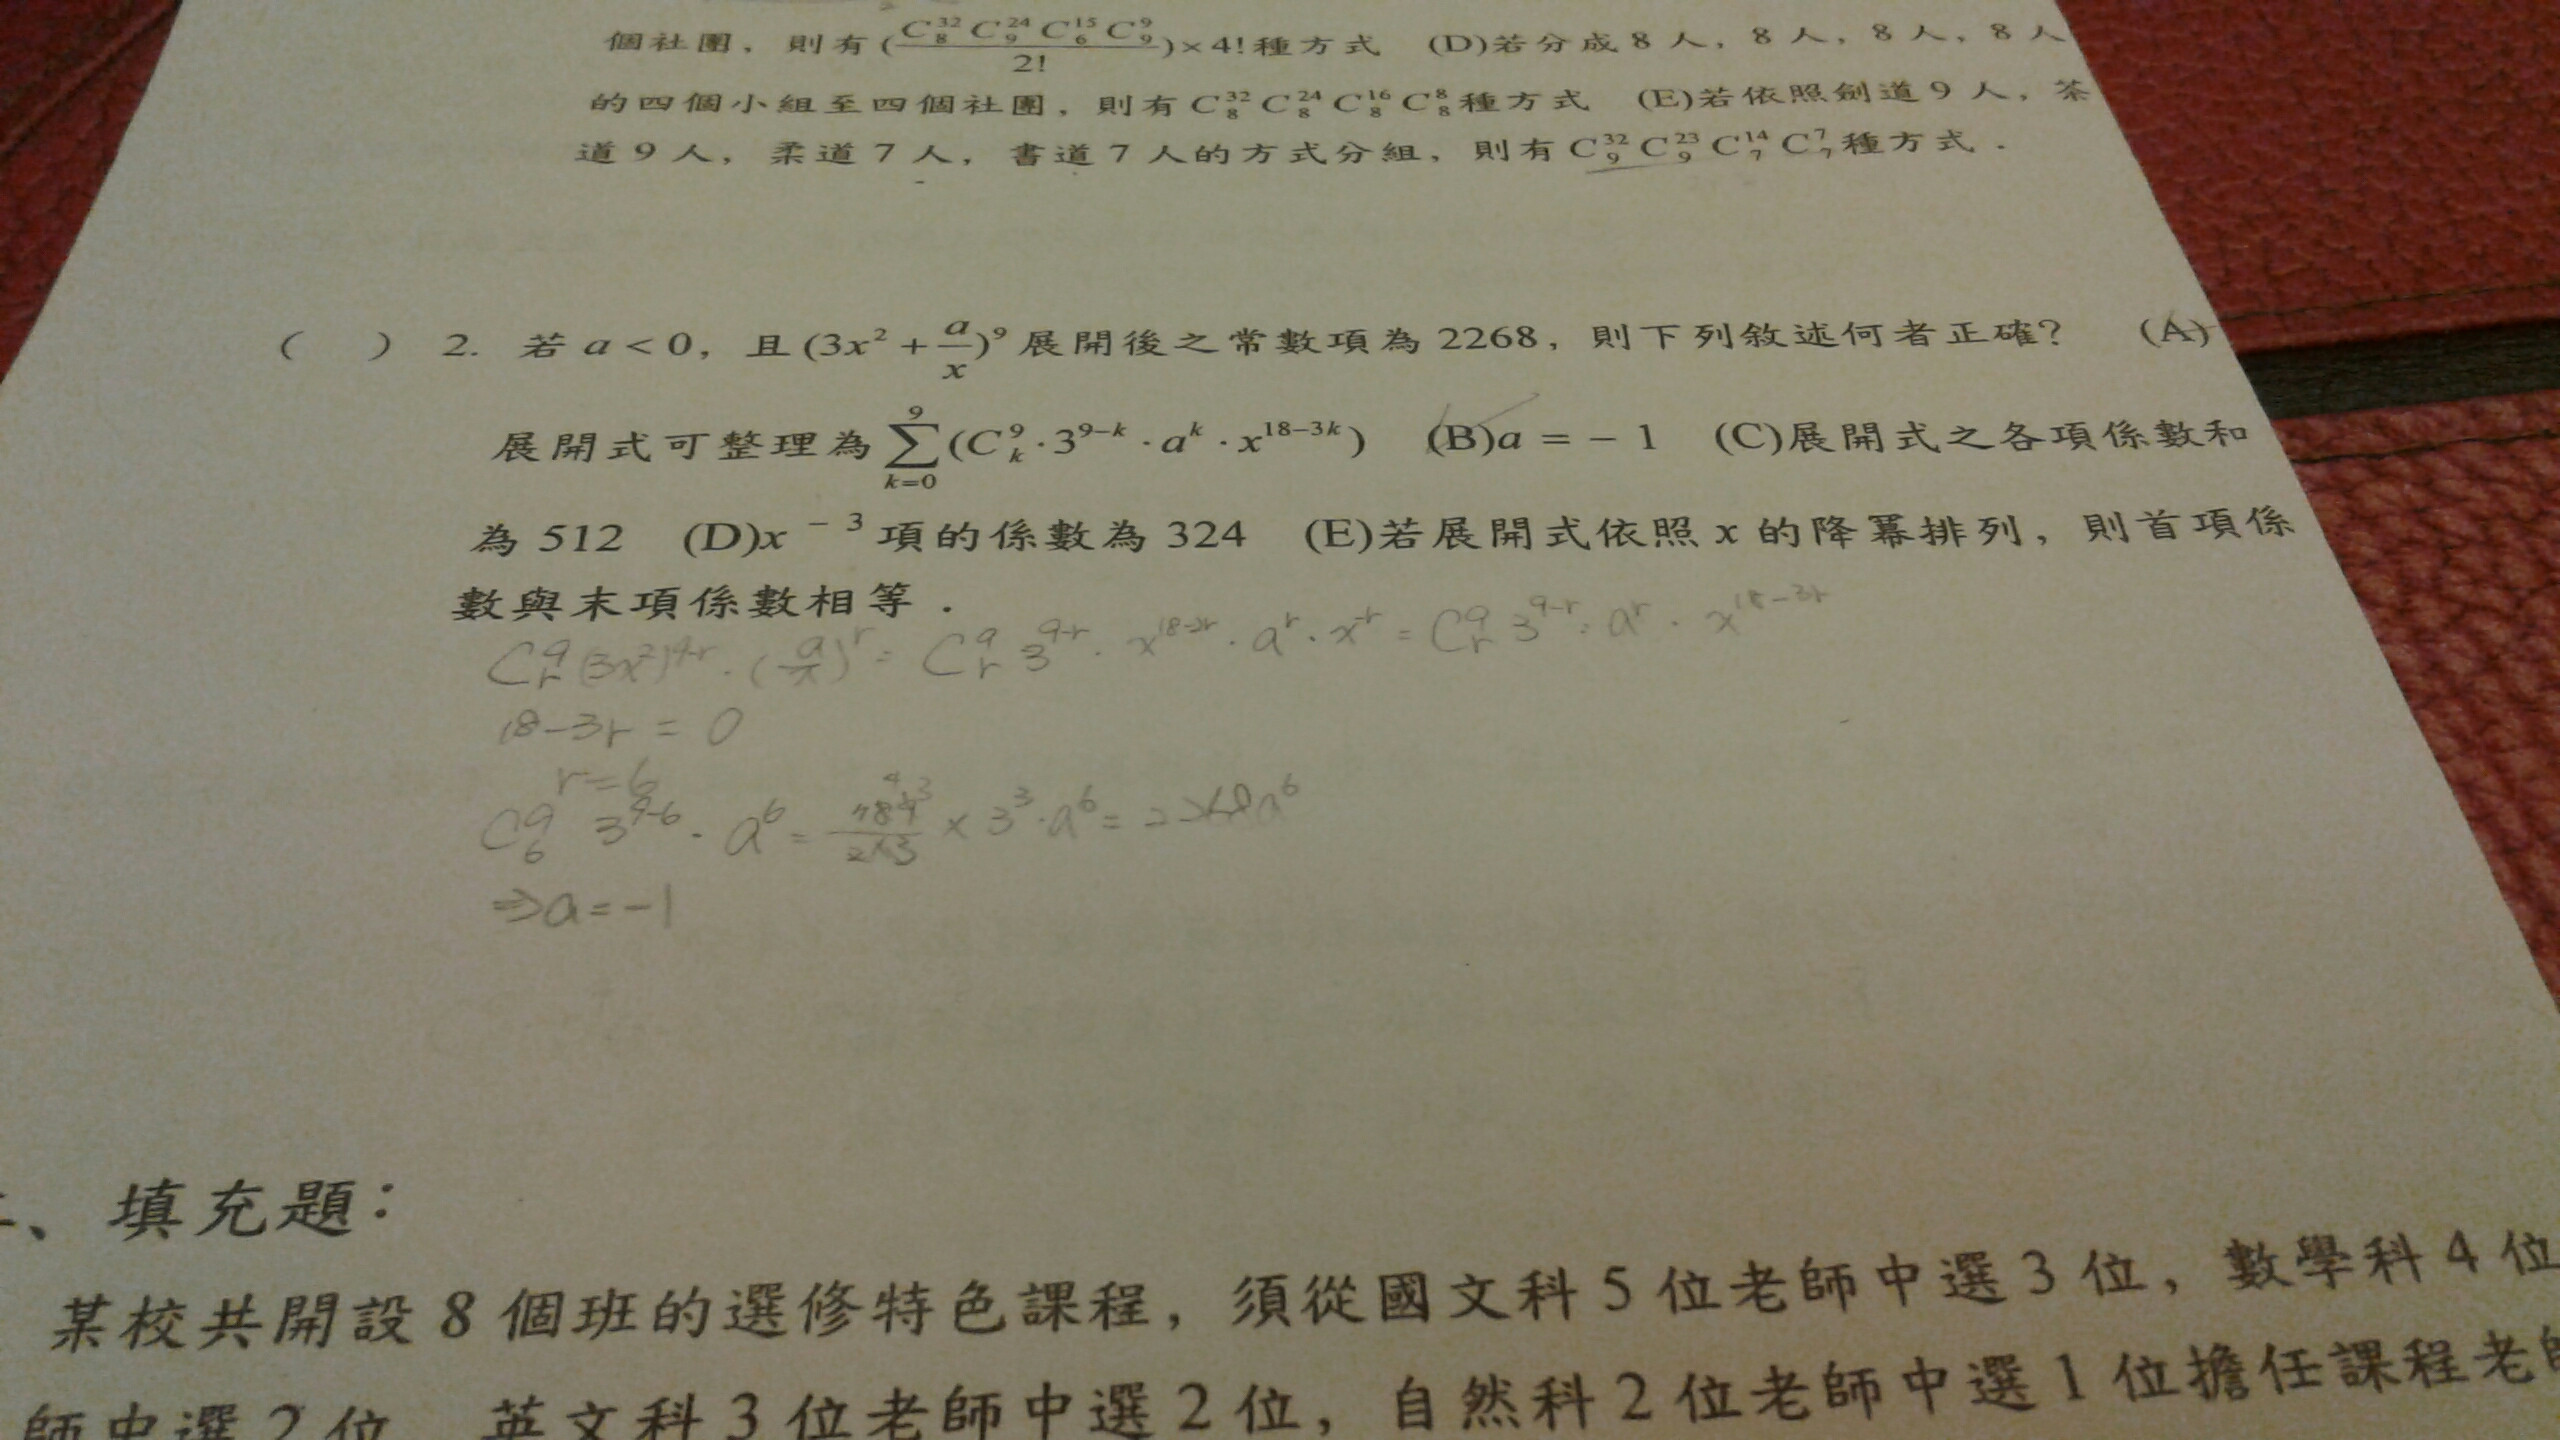 個社團，則有(C^{32}_8 C^{24}_9 C^{15}_6 C^9_9 / 2!)×4!種方式 (D)若分成8人，8人，8人，8人
的四個小組至四個社團，則有C^{32}_8 C^{24}_8 C^{16}_8 C^8_8種方式 (E)若依照劍道9人，茶
道9人，柔道7人，書道7人的方式分組，則有C^{32}_9 C^{23}_9 C^{14}_7 C^7_7種方式．
( ) 2. 若a<0，且(3x²+a/x)⁹展開後之常數項為2268，則下列敘述何者正確？ (A)
展開式可整理為∑_{k=0}^{9}(C^9_k·3^{9-k}·a^k·x^{18-3k}) (B)a=-1 (C)展開式之各項係數和
為512 (D)x^{-3}項的係數為324 (E)若展開式依照x的降冪排列，則首項係
數與末項係數相等．
C^9_r (3x²)^{9-r}·(a/x)^r = C^9_r 3^{9-r}·x^{18-2r}·a^r·x^{-r} = C^9_r 3^{9-r}·a^r·x^{18-3r}
18-3r=0
r=6
C^9_6 3^{9-6}·a^6 = × 3^3·a^6 = 2268a^6
⇒a=-1
、填充題：
某校共開設8個班的選修特色課程，須從國文科5位老師中選3位，數學科4位
師中選2位，英文科3位老師中選2位，自然科2位老師中選1位擔任課程老師